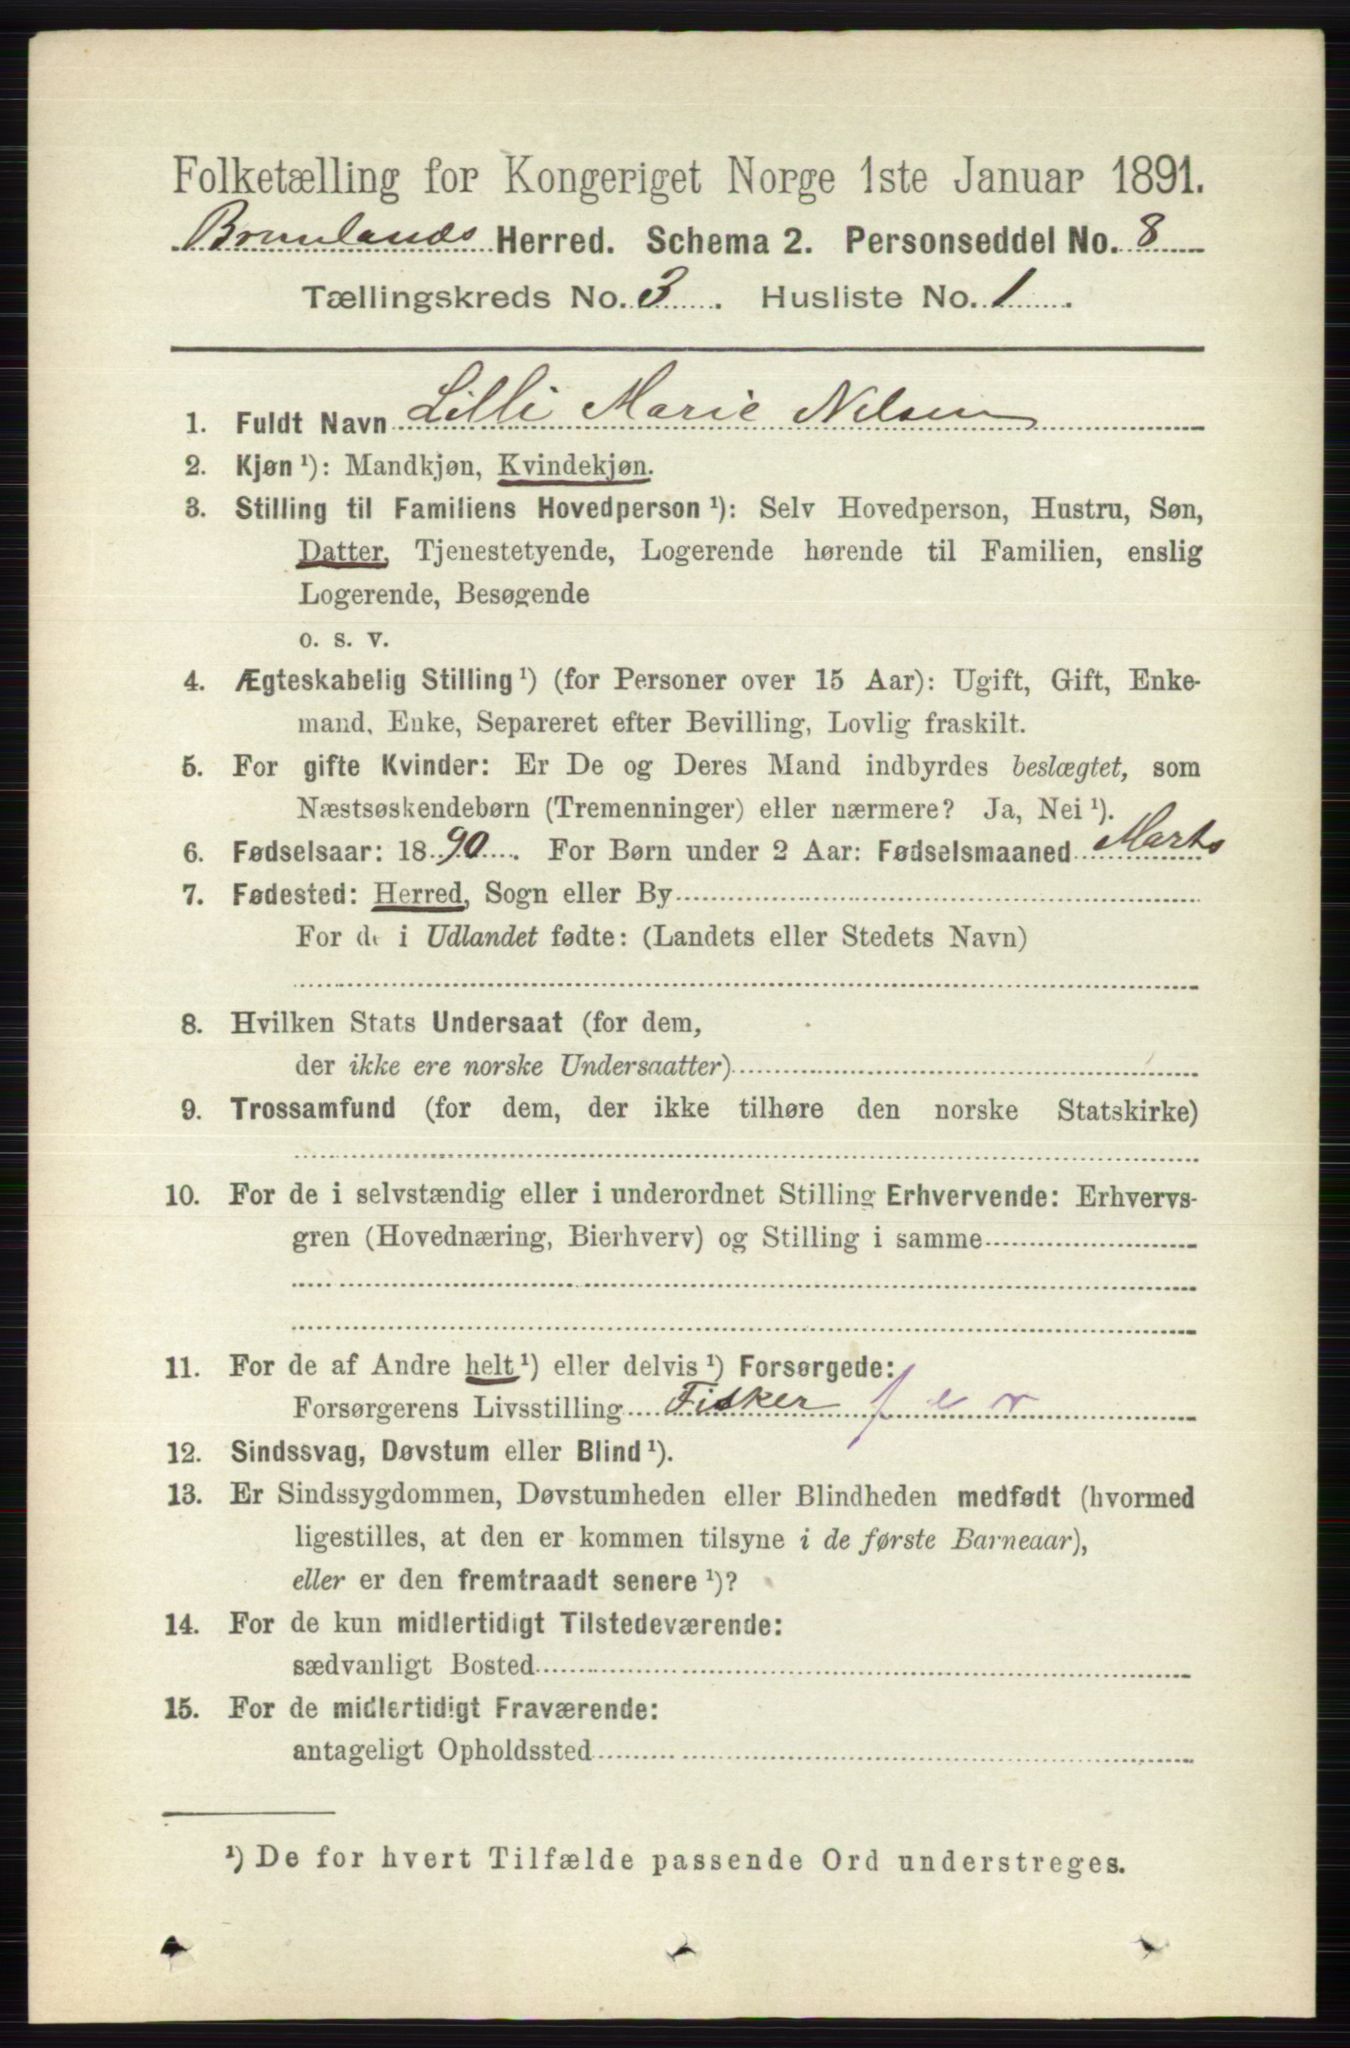 Folketælling for Kongeriget Norge 1ste Januar 1891.
Brunlands Herred. Schema 2. Personseddel No. 8
Tællingskreds No. 3. Husliste No. 1.
1. Fuldt Navn Lilli Marie Nilsen
2. Kjøn ¹): Mandkjøn, Kvindekjøn.
3. Stilling til Familiens Hovedperson ¹): Selv Hovedperson, Hustru, Søn,
Datter, Tjenestetyende, Logerende hørende til Familien, enslig
Logerende, Besøgende
o. s. v.
4. Ægteskabelig Stilling ¹) (for Personer over 15 Aar): Ugift, Gift, Enke-
mand, Enke, Separeret efter Bevilling, Lovlig fraskilt.
5. For gifte Kvinder: Er De og Deres Mand indbyrdes beslægtet, som
Næstsøskendebørn (Tremenninger) eller nærmere? Ja, Nei ¹).
6. Fødselsaar: 1890. For Børn under 2 Aar: Fødselsmaaned Marts
7. Fødested: Herred, Sogn eller By
For de i Udlandet fødte: (Landets eller Stedets Navn)
8. Hvilken Stats Undersaat (for dem,
der ikke ere norske Undersaatter)
9. Trossamfund (for dem, der ikke tilhøre den norske Statskirke)
10. For de i selvstændig eller i underordnet Stilling Erhvervende: Erhvervs-
gren (Hovednæring, Bierhverv) og Stilling i samme
11. For de af Andre helt ¹) eller delvis ¹) Forsørgede:
Forsørgerens Livsstilling Fisker f e r
12. Sindssvag, Døvstum eller Blind ¹).
13. Er Sindssygdommen, Døvstumheden eller Blindheden medfødt (hvormed
ligestilles, at den er kommen tilsyne i de første Barneaar),
eller er den fremtraadt senere ¹)?
14. For de kun midlertidigt Tilstedeværende:
sædvanligt Bosted
15. For de midlertidigt Fraværende:
antageligt Opholdssted
¹) De for hvert Tilfælde passende Ord understreges.